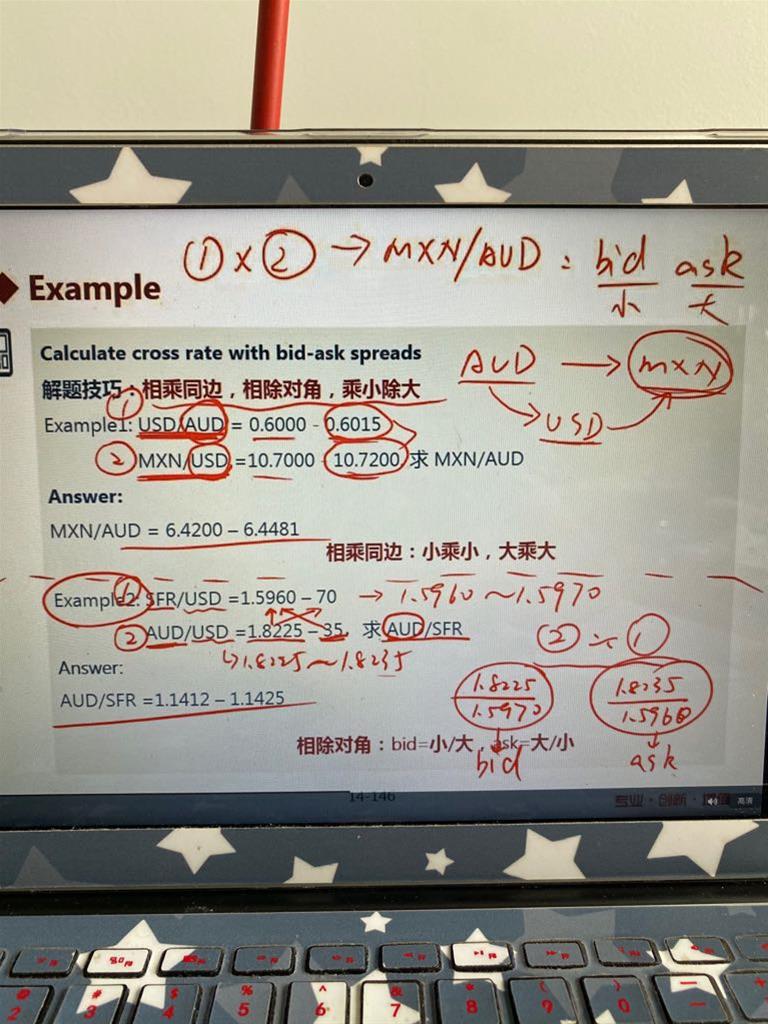 ①×② → MXN/AUD = bid ask
小 大
Example
Calculate cross rate with bid-ask spreads
AUD → MXN
USD
解题技巧：相乘同边，相除对角，乘小除大
① Example1: USD/AUD = 0.6000 - 0.6015
② MXN/USD =10.7000 - 10.7200 求 MXN/AUD
Answer:
MXN/AUD = 6.4200 – 6.4481
相乘同边：小乘小，大乘大
① Example2: SFR/USD =1.5960 – 70 → 1.5960 ~ 1.5970
② AUD/USD =1.8225 – 35, 求 AUD/SFR
② ÷ ①
↳ 1.8225 ~ 1.8235
Answer:
1.8225 1.8235
1.5970 1.5960
AUD/SFR =1.1412 – 1.1425
相除对角：bid=小/大，ask=大/小
bid ask
14-146
专业·创新·增值
高清
@ # $ % ^ & * ( ) — +
2 3 4 5 6 7 8 9 0 -